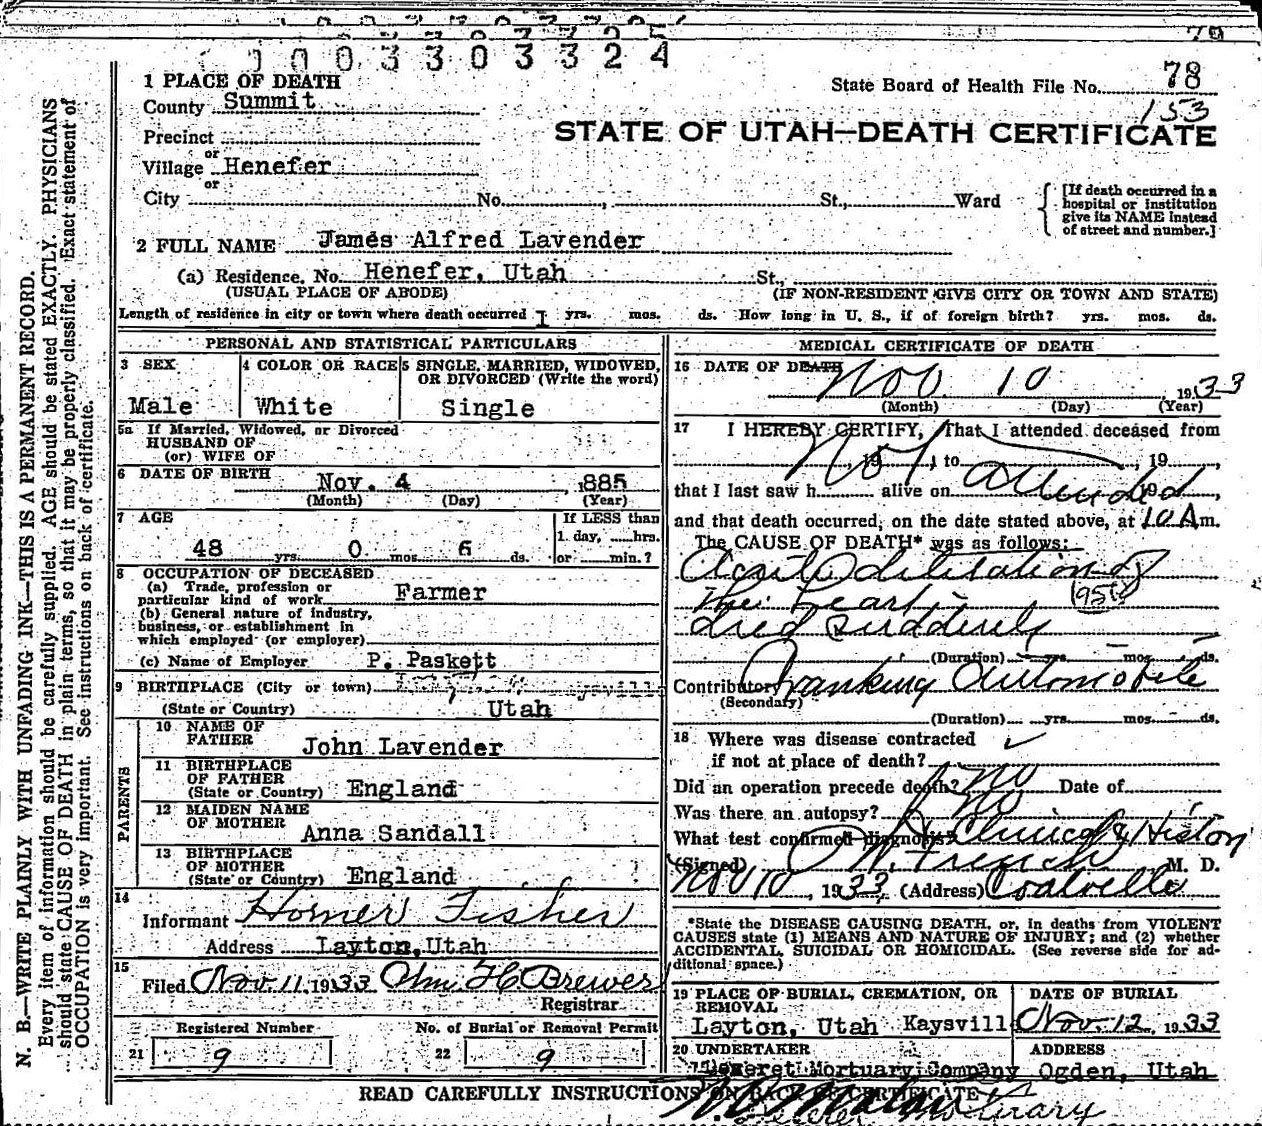 0003303324
State Board of Health File No. 78
153
1 PLACE OF DEATH
County Summit
STATE OF UTAH—DEATH CERTIFICATE
Precinct
or
Village Henefer
or
City No. , St., Ward
[If death occurred in a hospital or institution give its NAME instead of street and number.]
2 FULL NAME James Alfred Lavender
(a) Residence, No. Henefer, Utah St.,
(USUAL PLACE OF ABODE) (IF NON-RESIDENT GIVE CITY OR TOWN AND STATE)
Length of residence in city or town where death occurred 1 yrs. mos. ds. How long in U. S., if of foreign birth? yrs. mos. ds.
PERSONAL AND STATISTICAL PARTICULARS
3 SEX
Male
4 COLOR OR RACE
White
5 SINGLE, MARRIED, WIDOWED, OR DIVORCED (Write the word)
Single
5a If Married, Widowed, or Divorced
HUSBAND OF
(or) WIFE OF
6 DATE OF BIRTH Nov. 4, 1885
(Month) (Day) (Year)
7 AGE
48 yrs. 0 mos. 6 ds.
If LESS than
1 day, ......hrs.
or ......min.?
8 OCCUPATION OF DECEASED
(a) Trade, profession or
particular kind of work Farmer
(b) General nature of industry,
business, or establishment in
which employed (or employer)
(c) Name of Employer P. Paskett
9 BIRTHPLACE (City or town)
(State or Country) Utah
PARENTS
10 NAME OF FATHER John Lavender
11 BIRTHPLACE OF FATHER
(State or Country) England
12 MAIDEN NAME OF MOTHER Anna Sandall
13 BIRTHPLACE OF MOTHER
(State or Country) England
14
Informant Homer Fisher
Address Layton, Utah
15
Filed Nov. 11, 1933 H Brewer
Registrar
Registered Number
21 9
No. of Burial or Removal Permit
22 9
MEDICAL CERTIFICATE OF DEATH
16 DATE OF DEATH
Nov 10 1933
(Month) (Day) (Year)
17 I HEREBY CERTIFY, That I attended deceased from
Not, 19 , to , 19 ,
that I last saw h alive on attended 19 ,
and that death occurred, on the date stated above, at 10 A m.
The CAUSE OF DEATH* was as follows:
Acute Dilitation of
the Heart 95b
died suddenly
(Duration) yrs. mos. ds.
Contributory Cranking Automobile
(Secondary)
(Duration) yrs. mos. ds.
18 Where was disease contracted
if not at place of death?
Did an operation precede death? no Date of
Was there an autopsy? no
What test confirmed diagnosis? Clinical & History
(Signed) French M. D.
Nov 10, 1933, (Address) Coalville
*State the DISEASE CAUSING DEATH, or, in deaths from VIOLENT
CAUSES state (1) MEANS AND NATURE OF INJURY; and (2) whether
ACCIDENTAL, SUICIDAL OR HOMICIDAL. (See reverse side for ad-
ditional space.)
19 PLACE OF BURIAL, CREMATION, OR REMOVAL
Layton, Utah Kaysvill
DATE OF BURIAL
Nov. 12, 1933
20 UNDERTAKER
Deseret Mortuary Company
ADDRESS
Ogden, Utah
READ CAREFULLY INSTRUCTIONS ON BACK OF CERTIFICATE
N. B.—WRITE PLAINLY WITH UNFADING INK—THIS IS A PERMANENT RECORD.
Every item of information should be carefully supplied. AGE should be stated EXACTLY. PHYSICIANS
should state CAUSE OF DEATH in plain terms, so that it may be properly classified. Exact statement of
OCCUPATION is very important. See instructions on back of certificate.